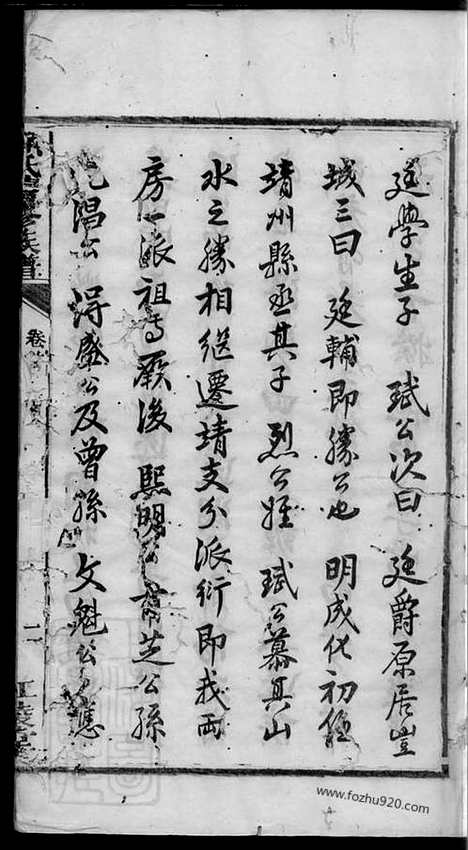 廷學生子 珷公次曰 廷爵原居豈
城三曰 廷輔即勝公也 明成化初任
靖州縣丞其子 烈公姪 珷公慕其山
水之勝相繼遷靖支分派衍即我兩
房一派祖焉厥後 熙明公 芝公孫
昌公 得盛公及曾孫 文魁公 應
族譜
卷首
二
www.fozhu920.com